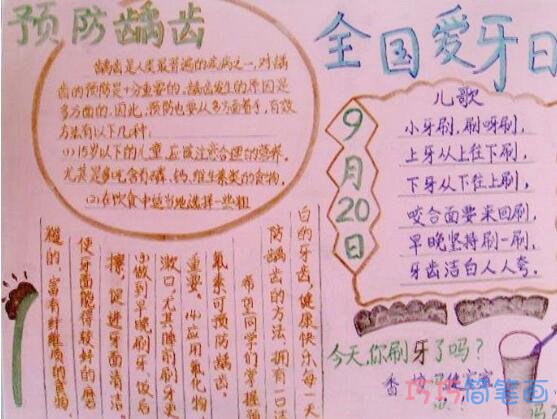 预防龋齿
龋齿是人类最普遍的疾病之一,对龋
齿的预防是十分重要的。龋齿发生的原因是
多方面的,因此,预防也要从多方面着手,有效
方法有以下几种:
(1)15岁以下的儿童,应该注意合理的营养。
尤其是多吃含有磷、钙、维生素类的食物,
(2)在饮食中适当地选择一些粗
糙的、富有纤维质的食物,
使牙面能得较好的摩
擦,促进牙面清洁
(3)做到早晚刷牙、饭后
漱口,尤其睡前刷牙更
重要。(4)应用氟化物
氟素可预防龋齿
希望同学们掌握
防龋齿的方法,拥有一口
白的牙齿,健康快乐每一天
全国爱牙日
9月20日
儿歌
小牙刷,刷呀刷,
上牙从上往下刷,
下牙从下往上刷,
咬合面要来回刷,
早晚坚持刷一刷,
牙齿洁白人人夸。
今天,你刷牙了吗?
巧巧简笔画